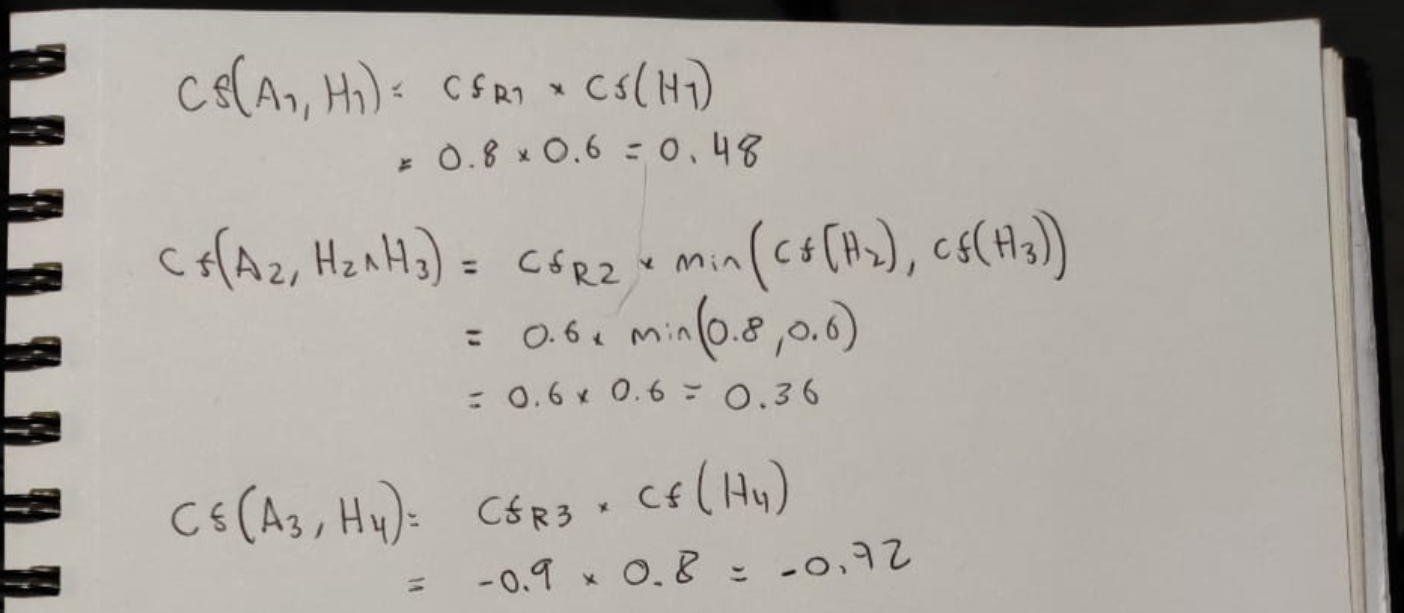 Cf(A₁, H₁) = Cf R1 × Cf(H1)
= 0.8 × 0.6 = 0.48
Cf(A₂, H₂∧H₃) = Cf R2 × min(Cf(H₂), Cf(H₃))
= 0.6 × min(0.8, 0.6)
= 0.6 × 0.6 = 0.36
Cf(A₃, H₄) = Cf R3 × Cf(H₄)
= -0.9 × 0.8 = -0.72